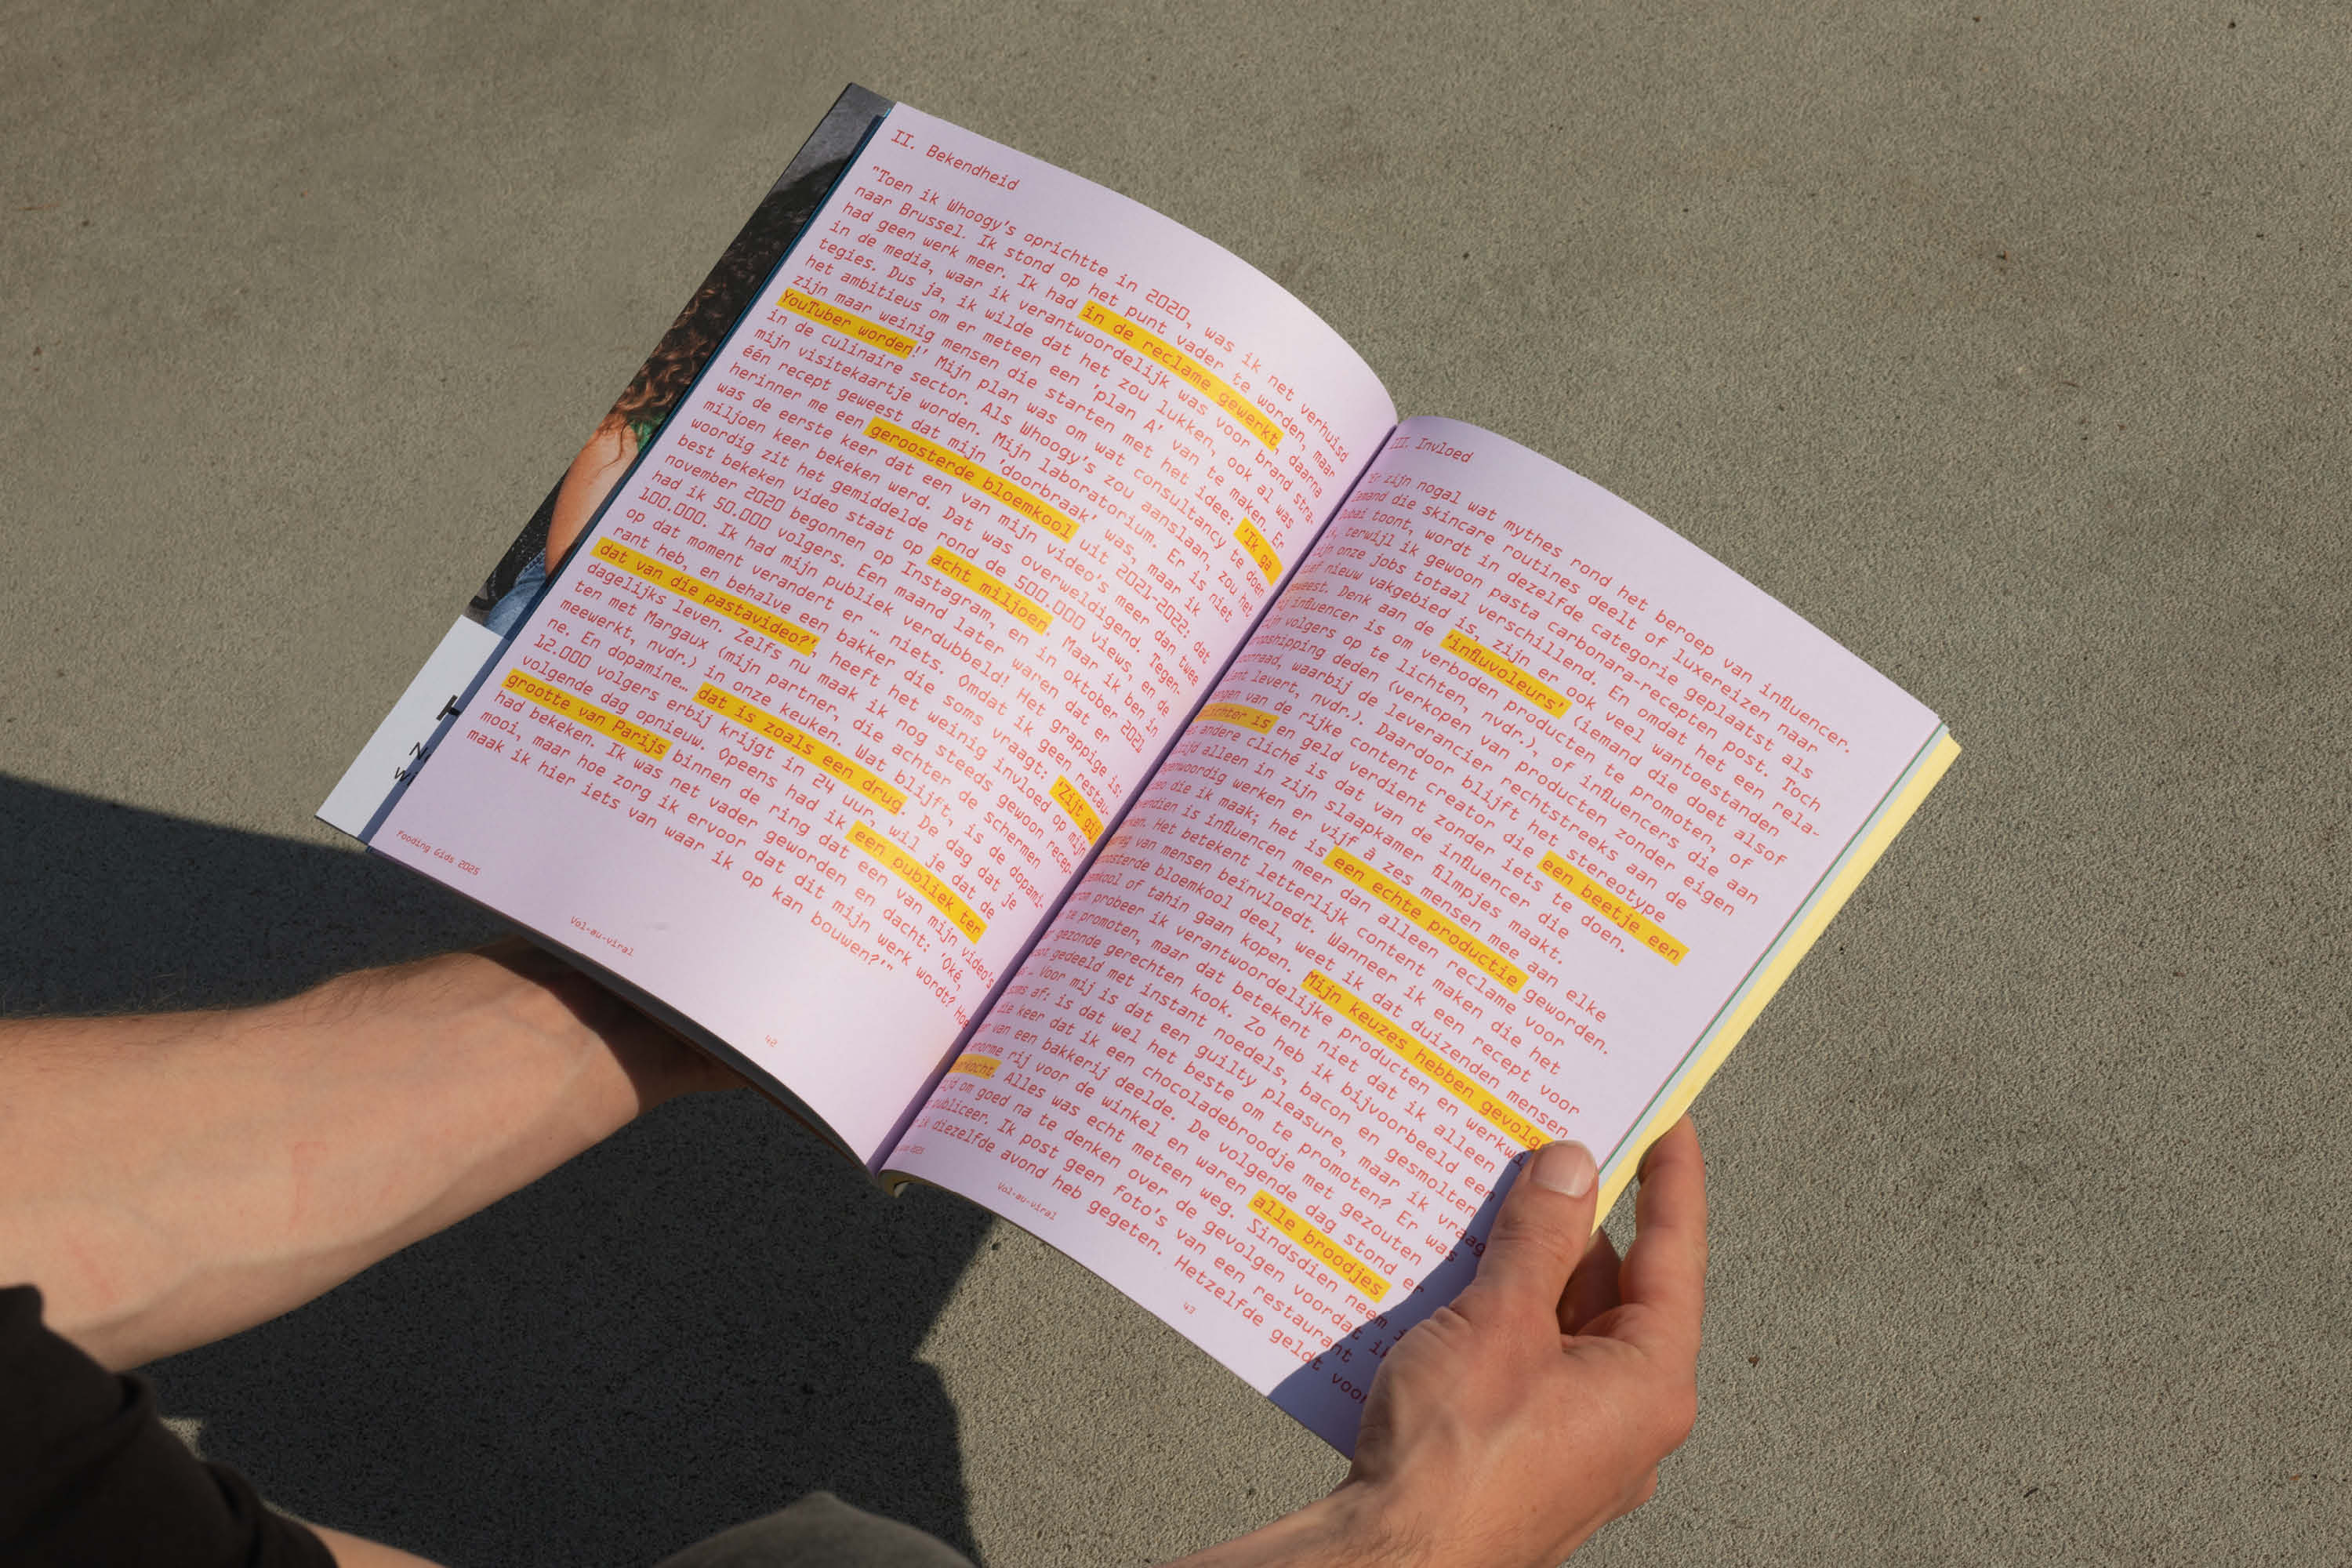 II. Bekendheid
"Toen ik Whoogy's oprichtte in 2020, was ik net verhuisd
naar Brussel. Ik stond op het punt vader te worden, maar
had geen werk meer. Ik had in de reclame gewerkt, daarna
in de media, waar ik verantwoordelijk was voor brand stra-
tegies. Dus ja, ik wilde dat het zou lukken, ook al was
het ambitieus om er meteen een 'plan A' van te maken. Er
zijn maar weinig mensen die starten met het idee: 'Ik ga
YouTuber worden!' Mijn plan was om wat consultancy te doen
in de culinaire sector. Als Whoogy's zou aanslaan, zou het
mijn visitekaartje worden. Mijn laboratorium. Er is niet
één recept geweest dat mijn 'doorbraak' was, maar ik
herinner me een geroosterde bloemkool uit 2021-2022: dat
was de eerste keer dat een van mijn video's meer dan twee
miljoen keer bekeken werd. Dat was overweldigend. Tegen-
woordig zit het gemiddelde rond de 500.000 views, en de
best bekeken video staat op acht miljoen. Maar ik ben in
november 2020 begonnen op Instagram, en in oktober 2021
had ik 50.000 volgers. Een maand later waren dat er
100.000. Ik had mijn publiek verdubbeld! Het grappige is:
op dat moment verandert er … niets. Omdat ik geen restau-
rant heb, en behalve een bakker die soms vraagt: 'Zijt gij
dat van die pastavideo?', heeft het weinig invloed op mijn
dagelijks leven. Zelfs nu maak ik nog steeds gewoon recep-
ten met Margaux (mijn partner, die achter de schermen
meewerkt, nvdr.) in onze keuken. Wat blijft, is de dopami-
ne. En dopamine… dat is zoals een drug. De dag dat je
12.000 volgers erbij krijgt in 24 uur, wil je dat de
volgende dag opnieuw. Opeens had ik een publiek ter
grootte van Parijs binnen de ring dat een van mijn video's
had bekeken. Ik was net vader geworden en dacht: 'Oké,
mooi, maar hoe zorg ik ervoor dat dit mijn werk wordt? Hoe
maak ik hier iets van waar ik op kan bouwen?'"
Fooding Gids 2025
Vol-au-viral
42
III. Invloed
"Er zijn nogal wat mythes rond het beroep van influencer.
Iemand die skincare routines deelt of luxereizen naar
Dubai toont, wordt in dezelfde categorie geplaatst als
ik, terwijl ik gewoon pasta carbonara-recepten post. Toch
zijn onze jobs totaal verschillend. En omdat het een rela-
tief nieuw vakgebied is, zijn er ook veel wantoestanden
geweest. Denk aan de 'influvoleurs' (iemand die doet alsof
hij influencer is om verboden producten te promoten, of
zijn volgers op te lichten, nvdr.), of influencers die aan
dropshipping deden (verkopen van producten zonder eigen
voorraad, waarbij de leverancier rechtstreeks aan de
klant levert, nvdr.). Daardoor blijft het stereotype
hangen van de rijke content creator die een beetje een
oplichter is en geld verdient zonder iets te doen.
andere cliché is dat van de influencer die
altijd alleen in zijn slaapkamer filmpjes maakt.
Tegenwoordig werken er vijf à zes mensen mee aan elke
video die ik maak; het is een echte productie geworden.
Bovendien is influencen meer dan alleen reclame voor
Het betekent letterlijk content maken die het
van mensen beïnvloedt. Wanneer ik een recept voor
geroosterde bloemkool deel, weet ik dat duizenden mensen
bloemkool of tahin gaan kopen. Mijn keuzes hebben gevolg
probeer ik verantwoordelijke producten en
te promoten, maar dat betekent niet dat ik alleen
gezonde gerechten kook. Zo heb ik bijvoorbeeld een
gedeeld met instant noedels, bacon en gesmolten
Voor mij is dat een guilty pleasure, maar ik vraag
soms af: is dat wel het beste om te promoten? Er was
die keer dat ik een chocoladebroodje met gezouten
van een bakkerij deelde. De volgende dag stond er
enorme rij voor de winkel en waren alle broodjes
verkocht. Alles was echt meteen weg. Sindsdien neem
tijd om goed na te denken over de gevolgen voordat ik
publiceer. Ik post geen foto's van een restaurant
ik diezelfde avond heb gegeten. Hetzelfde geldt voor
Vol-au-viral
43